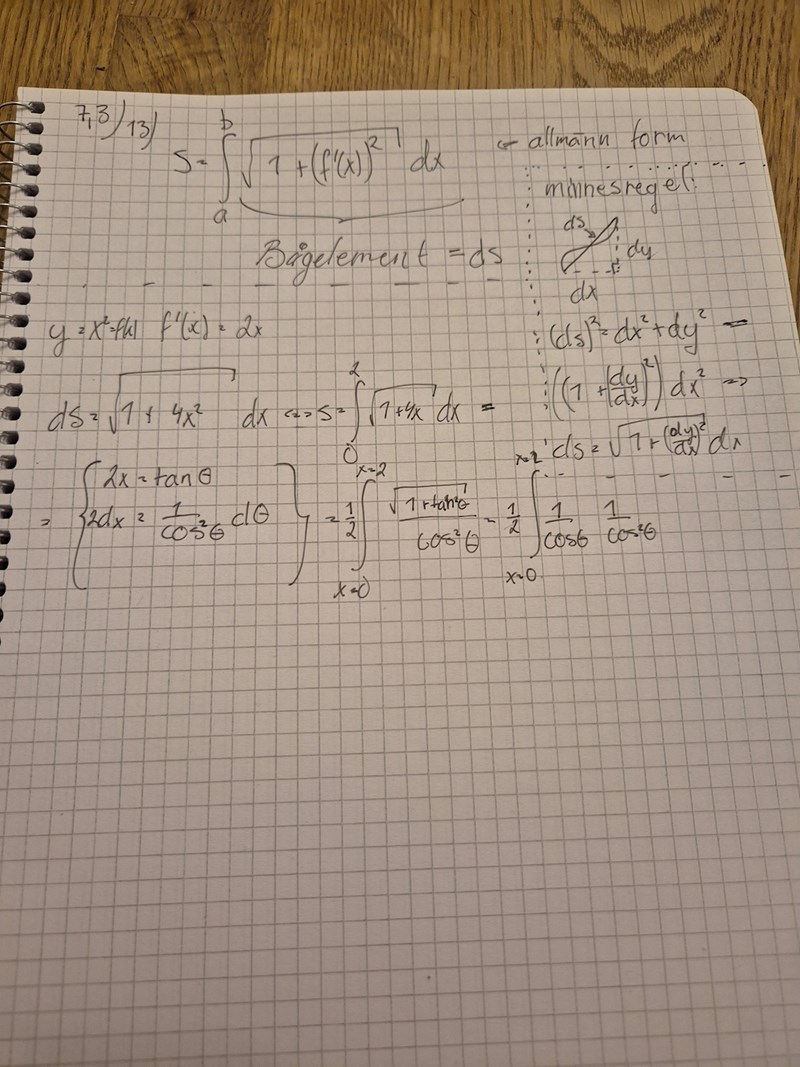 7,3) 13)
S = ∫_a^b √(1 + (f'(x))²) dx ← allmänn form
Bågelement = ds
minnesregel:
ds
dy
dx
(ds)² = dx² + dy² =
((1 + (dy/dx)²) dx² ⇒
ds = √(1 + (dy/dx)²) dx
y = x² = f(x) f'(x) = 2x
ds = √(1 + 4x²) dx ⇔ s = ∫_0^2 √(1+4x) dx =
= { 2x = tan θ
2dx = 1/cos²θ dθ } = 1/2 ∫_{x=0}^{x=2} √(1+tan²θ)/cos²θ = 1/2 ∫_{x=0}^{x=2} 1/cosθ 1/cos²θ